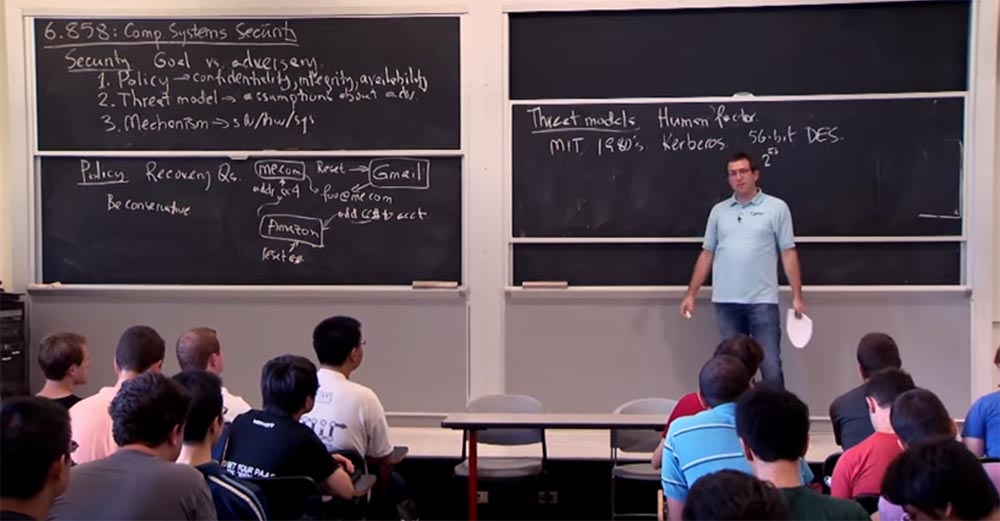 6.858: Comp Systems Security
Security Goal vs. adversary.
1. Policy → confidentiality, integrity, availability
2. Threat model → assumptions about adv.
3. Mechanism → sw/hw/sys
Policy Recovery Qs.
Be conservative
me.com
addr, cc4
Reset
Gmail
foo@me.com
Amazon
add cc# to acct
Reset
Threat models Human factor.
MIT 1980's. Kerberos. 56-bit DES.
2^56